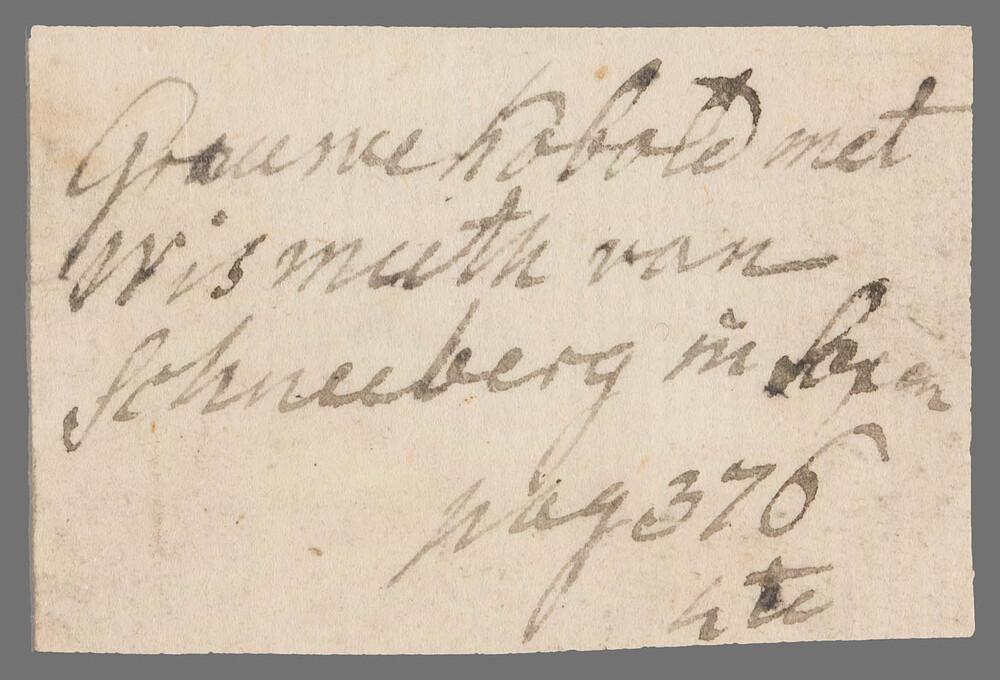 Grauwe kobold met
Wismuth van
Schneeberg in
pag 376
4te